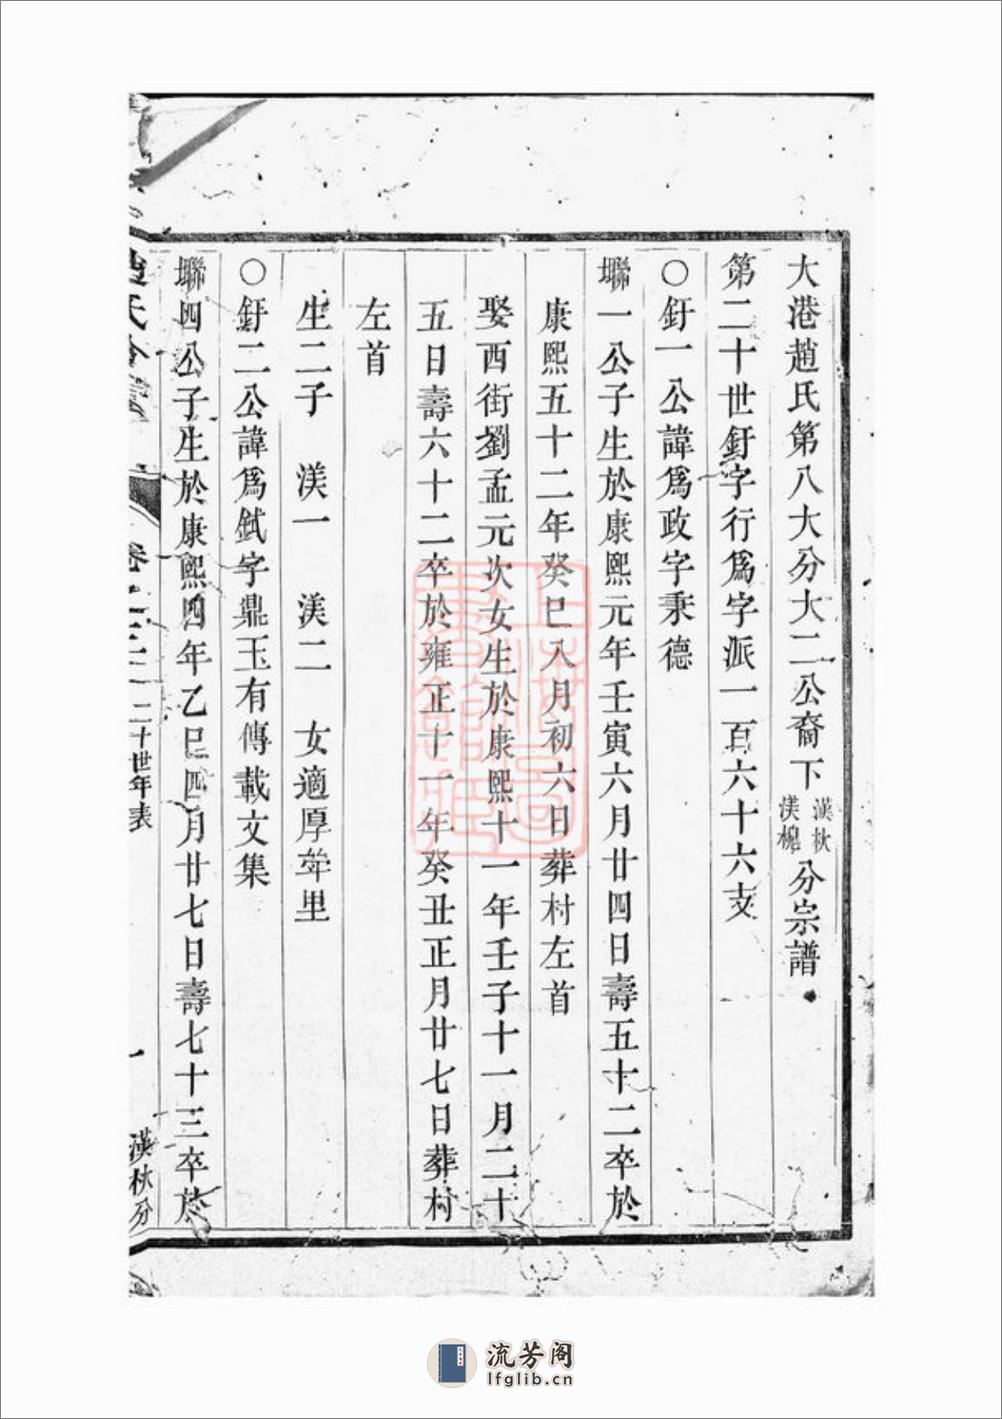 大港趙氏第八大分大二公裔下漢秋渼槐分宗譜
第二十世釪字行爲字派一百六十六支
○釪一公諱爲政字秉德
㙺一公子生於康熙元年壬寅六月廿四日壽五十二卒於
康熙五十二年癸巳八月初六日葬村左首
娶西街劉孟元次女生於康熙十一年壬子十一月二十
五日壽六十二卒於雍正十一年癸丑正月廿七日葬村
左首
生二子 渼一 渼二 女適厚莘里
○釪二公諱爲鉽字鼎玉有傳載文集
㙺四公子生於康熙四年乙巳四月廿七日壽七十三卒於
趙氏分譜 卷之三 二十世年表 一 漢秋分
流芳阁
lfglib.cn